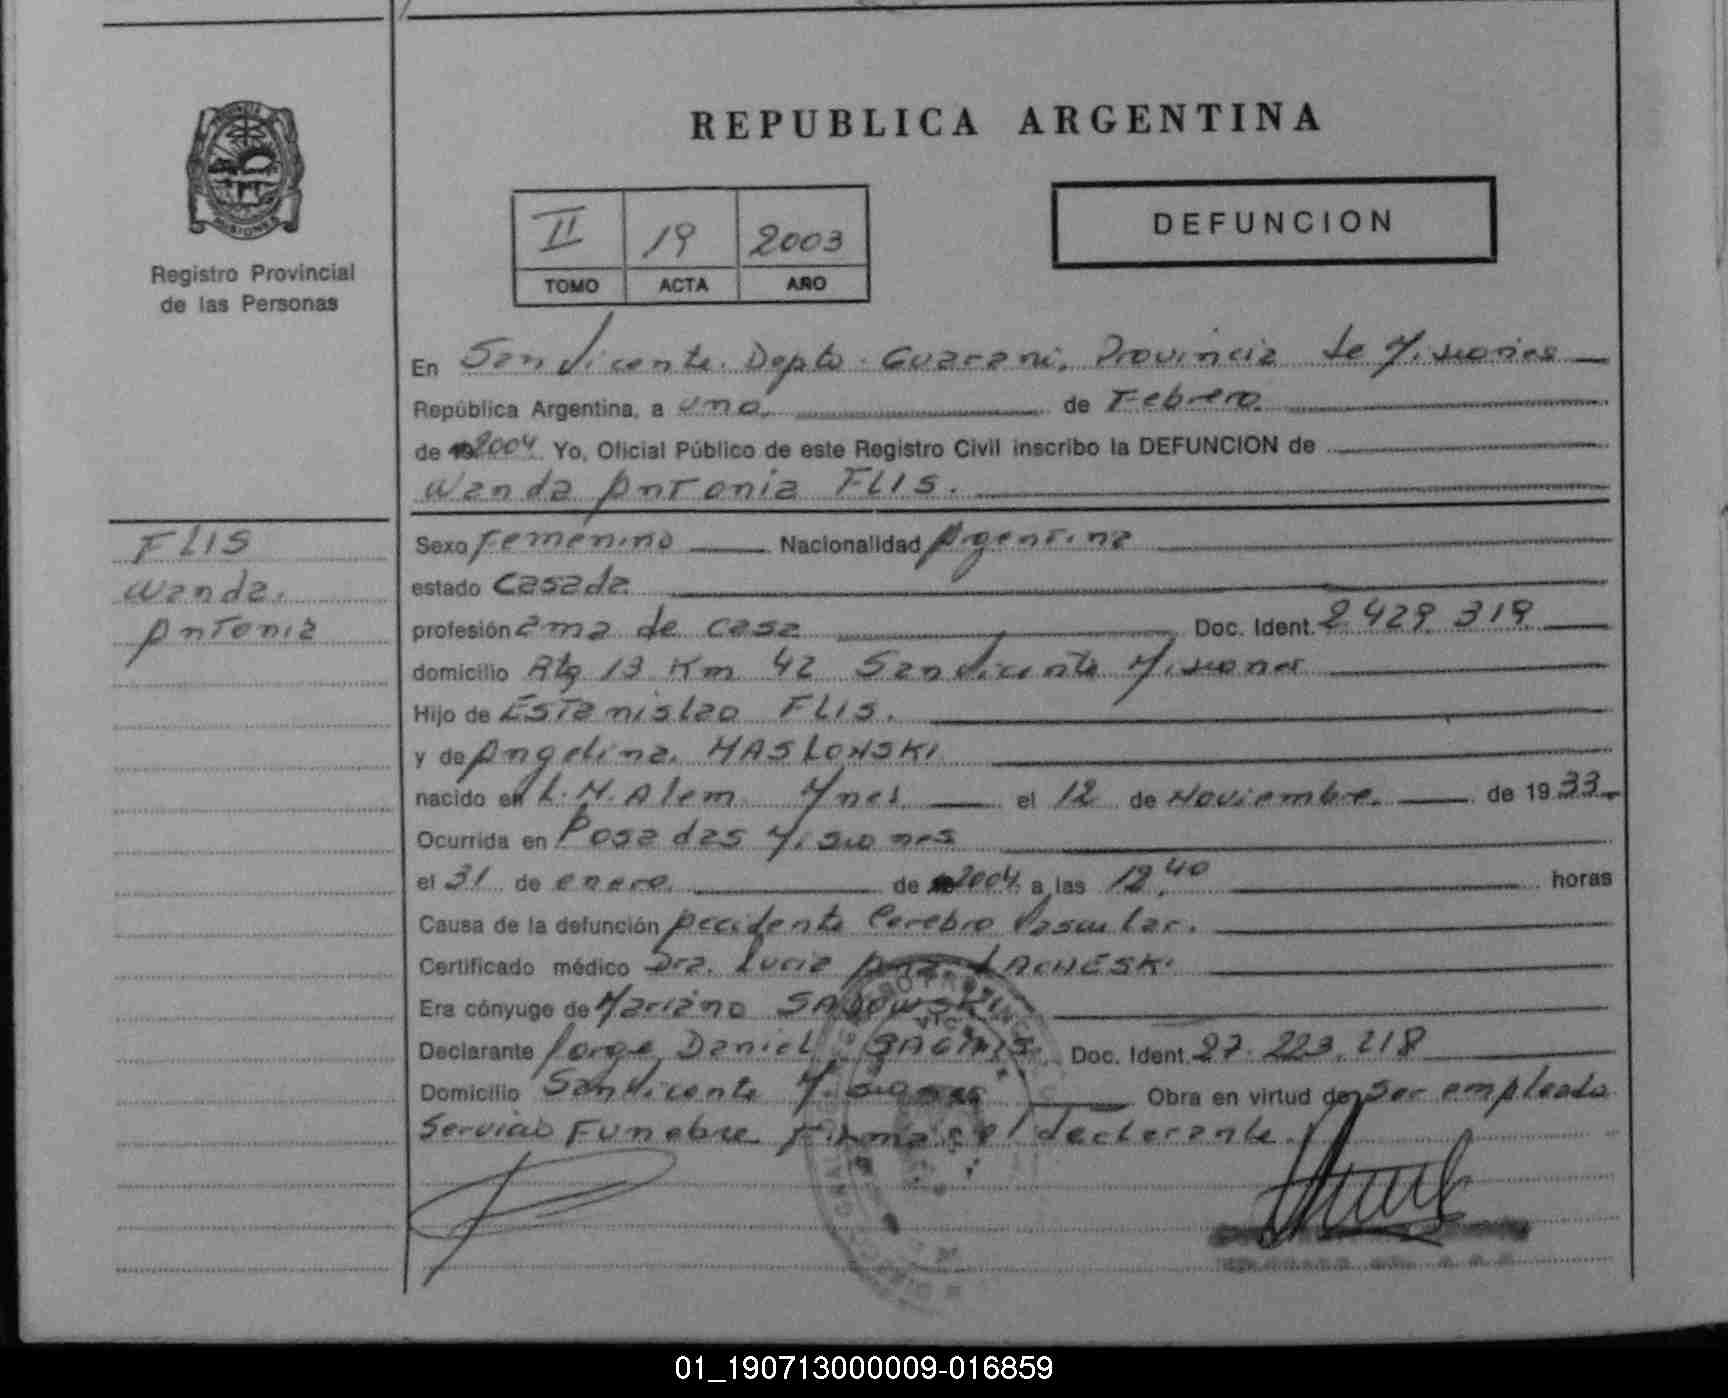 REPUBLICA ARGENTINA
PROVINCIA
MISIONES
Registro Provincial
de las Personas
II 19 2003
TOMO ACTA AÑO
DEFUNCION
En San Vicente. Depto. Guarani, Provincia de Misiones
República Argentina, a uno. de Febrero.
de 2004 Yo, Oficial Público de este Registro Civil inscribo la DEFUNCION de
Wanda Antonia FLIS.
FLIS
Wanda.
Antonia
Sexo Femenino Nacionalidad Argentina
estado Casada
profesión ama de casa Doc. Ident. 2 429 319
domicilio Rta 13 Km 42 San Vicente Misiones
Hijo de Estanislao FLIS.
y de Angelina. MASLOWSKI
nacido en L. N. Alem Mnes el 12 de Noviembre. de 1933
Ocurrida en Posadas Misiones
el 31 de enero. de 2004 a las 12,40 horas
Causa de la defunción Accidente Cerebro Vascular.
Certificado médico Dra. Lucia Ana
Era cónyuge de Mariano SADOWSKI
Declarante Jorge Daniel Doc. Ident. 27. 223. 218
Domicilio San Vicente Misiones Obra en virtud de Ser empleado
Servicio Funebre Firma el declarante.
01_190713000009-016859